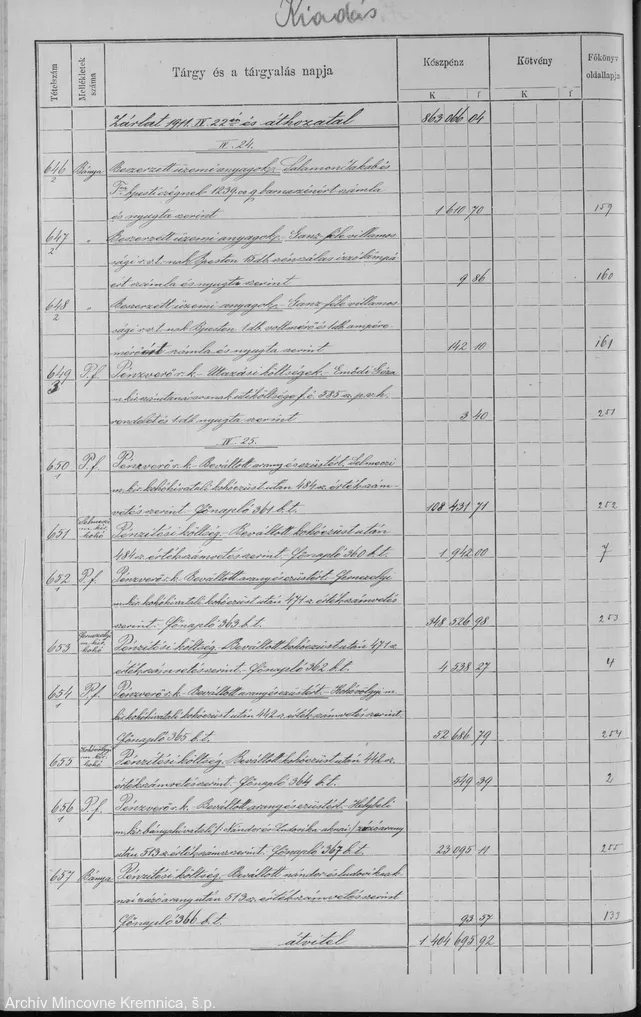 Kiadás
Tételszám
Mellékletek száma
Tárgy és a tárgyalás napja
Készpénz
Kötvény
Főkönyv oldallapja
K f K f
Zárlat 1911. IV. 22 én és áthozatal 863 066 04
IV. 24.
646/2 Bánya Beszerzett üzemi anyagok. Salamon Jakab és
Fia bpesti czégnek 1239 q barnaszénért számla
és nyugta szerint 1 610 70 159
647/2 " Beszerzett üzemi anyagok. Ganz féle villamos
sági r.t. nak Bpesten izzólámpá
ért számla és nyugta szerint 9 86 160
648/2 " Beszerzett üzemi anyagok. Ganz féle villamos
sági r.t. nak Bpesten 1 db voltmérő és 1 db ampére-
mérőért számla és nyugta szerint 142 10 161
649/3 P.f. Pénzverő r.k. Utazási költségek. Enődi Géza
385 sz. p.v.h.
rendelet és 1 db nyugta szerint 3 40 251
IV. 25.
650/1 P.f. Pénzverő r.k. Beváltott arany és ezüstért. Selmeczi
m. kir. kohóhivatali kohóezüst után 484 sz. értékszám-
vetés szerint. Főnapló 361 b.t. 108 431 71 252
651 Selmeczi m. kir. kohó Pénzitési költség. Beváltott kohóezüst után
484 sz. értékszámvetés szerint. Főnapló 360 b.t. 1 942 00 7
652/1 P.f. Pénzverő r.k. Beváltott arany és ezüstért. Fernezelyi
m. kir. kohóhivatali kohóezüst után 471 sz. értékszámvetés
szerint. Főnapló 363 b.t. 348 526 98 253
653 Fernezelyi m. kir. kohó Pénzitési költség. Beváltott kohóezüst után 471 sz.
értékszámvetés szerint. Főnapló 362 b.t. 4 538 27 4
654/1 P.f. Pénzverő r.k. Beváltott arany és ezüstért. Kohóvölgyi m.
kir. kohóhivatali kohóezüst után 442 sz. értékszámvetés szerint.
Főnapló 365 b.t. 52 686 79 254
655 Kohóvölgyi m. kir. kohó Pénzitési költség. Beváltott kohóezüst után 442 sz.
értékszámvetés szerint. Főnapló 364 b.t. 549 39 2
656/1 P.f. Pénzverő r.k. Beváltott arany és ezüstért. Helybeli
m. kir. bányahivatali /: Nándor és Ludovika aknai :/ zúzóarany
után 513 sz. értékszámv. szerint. Főnapló 367 b.t. 23 095 11 255
657 Bánya Pénzitési költség. Beváltott nándor és ludovikaak-
nai zúzóarany után 513 sz. értékszámvetés szerint
Főnapló 366 b.t. 93 57 133
átvitel 1 404 695 92
Archív Mincovne Kremnica, š.p.